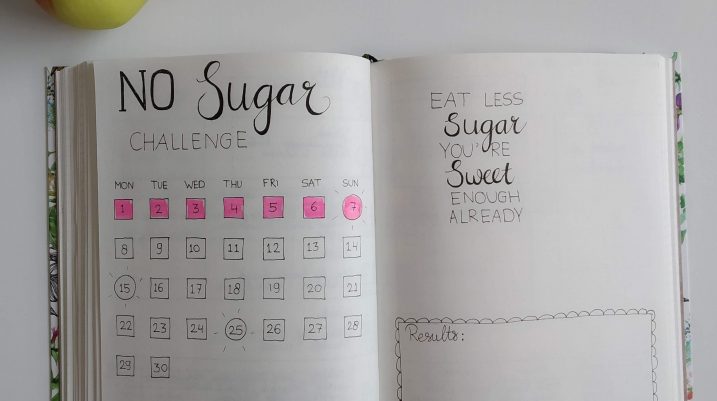 NO Sugar
CHALLENGE
MON TUE WED THU FRI SAT SUN
1 2 3 4 5 6 7
8 9 10 11 12 13 14
15 16 17 18 19 20 21
22 23 24 25 26 27 28
29 30
EAT LESS
Sugar
YOU'RE
Sweet
ENOUGH
ALREADY
Results: